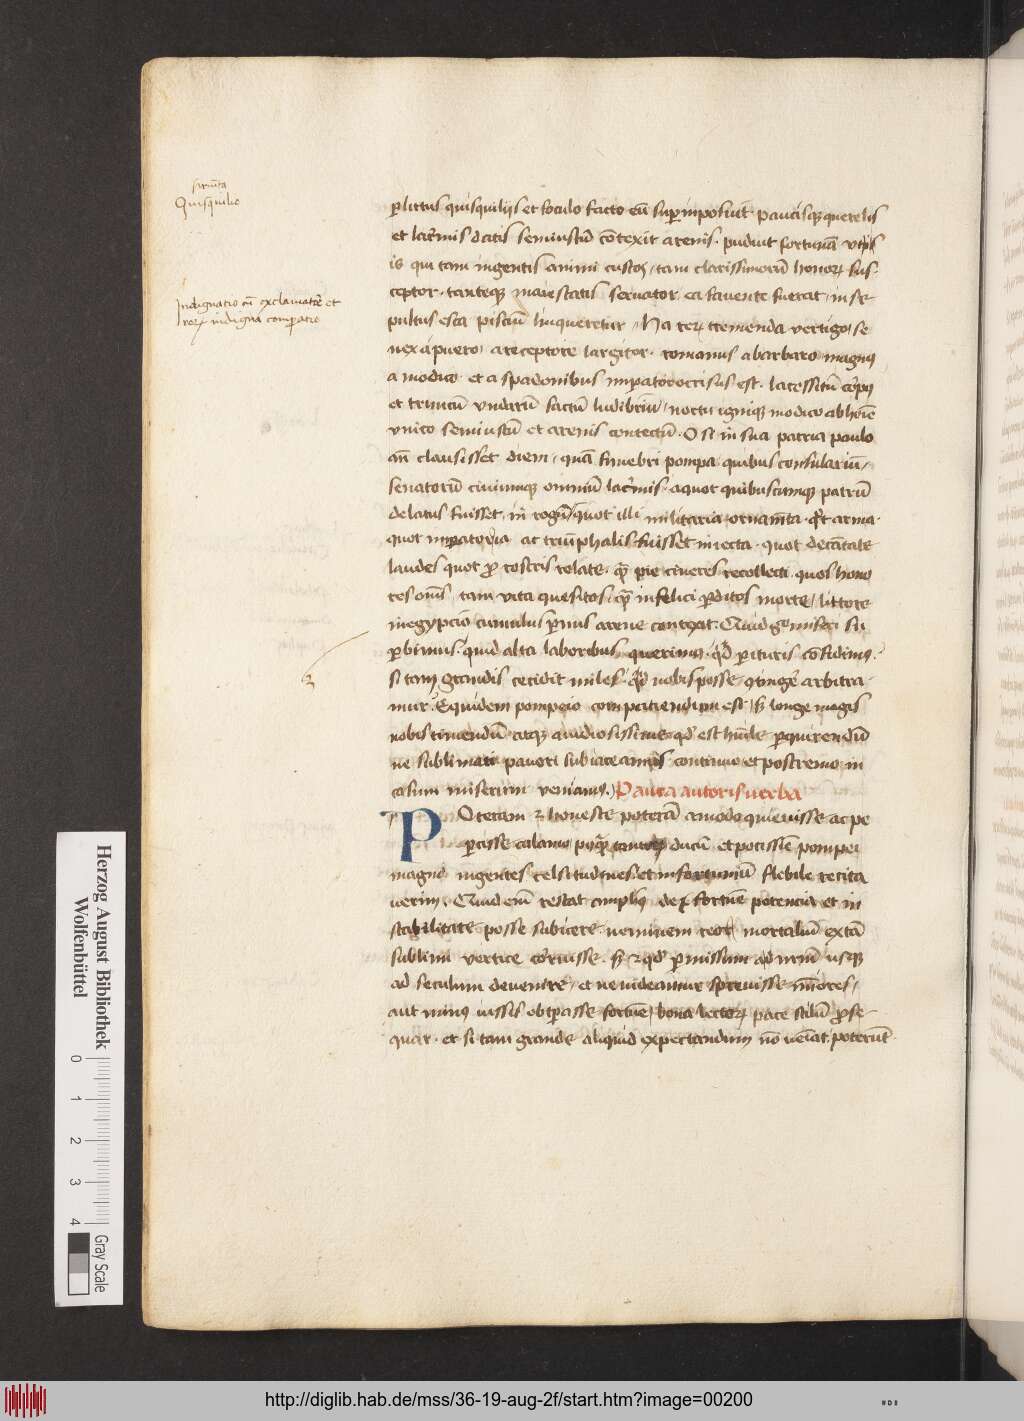 Quisquilie
p̱ littus quisquiliis et foculo facto eū sup̱imposuit paucisq̄ querelis
et lac̄mis datis semiustū cōtexit arenis. puduit fortunā
is qui tam ingentis animi custos, tam clarissimorū honoꝝ sus-
ceptor. tanteqꝫ maiestatis seruator ea fauente fuerat, in se-
pultus esca pisciū linqueretur. Ha reꝝ tremenda vertigo, se
nex a puero, a receptore largitor. romanus a barbaro magnus
a modico et a spadonibus imp̱ator occisus est. lacessitū corpus
et truncū undarū factū ludibriū, noctu igniqꝫ modico ab hoīe
vnico semiustū et arenis contectū. O si in sua patria paulo
an̄ clausisset diem, quā funebri pompa quibus consulariū,
senatorū ciuiumqꝫ omniū lac̄mis. a quot quibuscumqꝫ patrū
delatus fuisset in rogū, quot illi militaria ornam̄ta. q̄t arma.
quot imp̱atoria ac triūphalis fuisset iniecta. quot decātate
laudes quot ꝓ rostris relate. q̄ꝫ pie cineres recollecti. quos hono
res om̄s tam vita quesitos, q̄ꝫ infelici p̱ditos morte, littore
in egypcio cumulus p̱uus arene contexit. Quid gͦ miseri su
p̱bimus. quid alta laboribus querimus. qd̄ p̱ituris cōfidimus?
si tam grandis cecidit miles. qd̄ nobis posse ɔtingē arbitra-
mur? Equidem pompeio compatiendum est, sꝫ longe magis
nobis timendū atqꝫ auidiosissime qd̄ est hūile p̱quirendū
ne sublimati pauori subiaceamus continuo et postremo in
casum miserum veniamus. Pauca autoris uerba
POteram ⁊ honeste poterā amodo quieuisse ac pe
p̱cisse calamo ducū et potissīe pompei
magni ingentes celsitudines et infortuniū flebile recita
uerim. Quid em̄ restat amplius de fortūe potencia et in
stabilitate posse subicere neminem reor mortaliū extā
sublimi vertice corruisse. sꝫ ⁊ qꝫ p̱missum ad nr̄m usqꝫ
ad seculum deuenire, et ne uideamur spreuisse
aut minus iussis obtp̱asse fortūe, bona lectoꝝ pace stilū ꝓse-
quar. et si tam grande aliquid expectandum nō ueīat. poterūt
Herzog August Bibliothek
Wolfenbüttel
0 1 2 3 4
Gray Scale
http://diglib.hab.de/mss/36-19-aug-2f/start.htm?image=00200